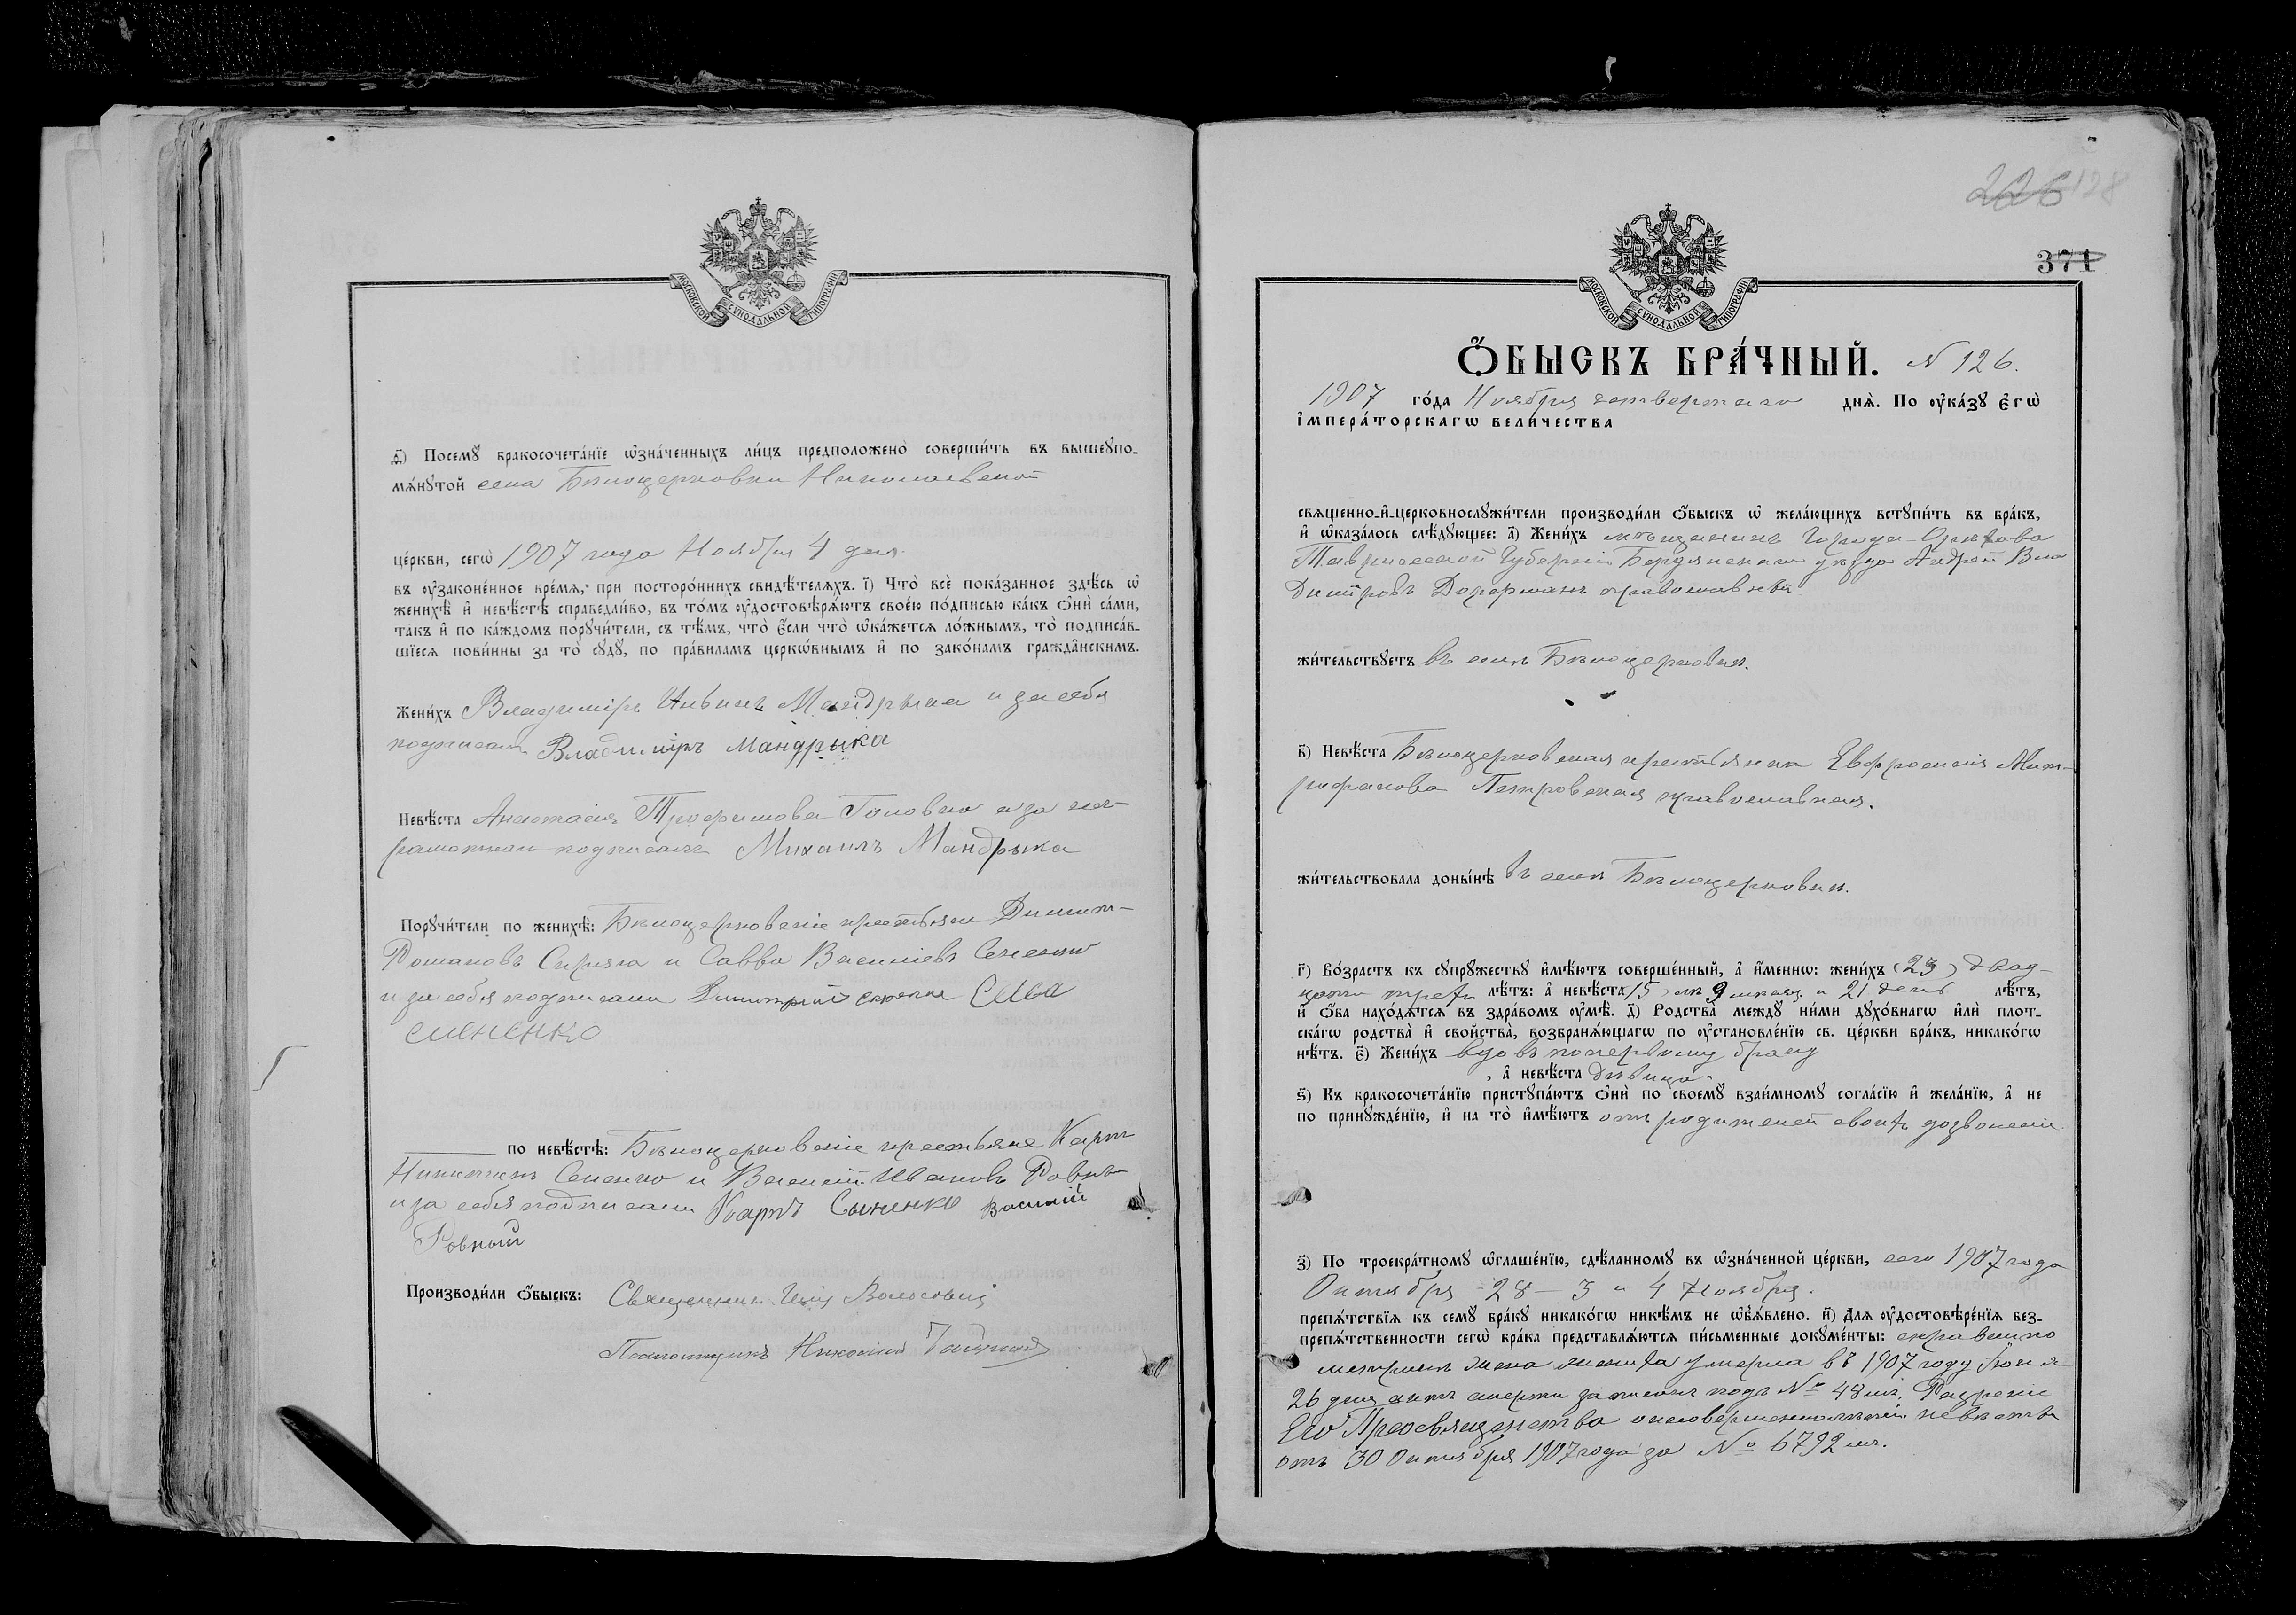 МОСКОВСКОЙ СѴНОДАЛЬНОЙ ТИПОГРАФІИ
ѳ҃) Посемꙋ̀ бракосочета́нїе ѡ҆зна́ченныхъ ли́цъ предположено̀ соверши́ть въ вышеꙋпо-
мѧ́нꙋтой села Бѣлоцерковки Николаевской
це́ркви, сегѡ̀ 1907 года Ноября 4 дня.
въ ᲂу҆зако́ненное вре́мѧ, при посторо́ннихъ свидѣ́телѧхъ. і҃) Что̀ всѐ пока́занное здѣ́сь ѡ҆
женихѣ̀ и҆ невѣ́стѣ справедли́во, въ то́мъ ᲂу҆достовѣрѧ́ютъ свое́ю по́дписью ка́къ ѻ҆нѝ са́ми,
та́къ и҆ по ка́ждомъ порꙋчи́тели, съ тѣ́мъ, что̀ є҆́сли что̀ ѡ҆ка́жетсѧ ло́жнымъ, то̀ подписа́в-
шїесѧ пови́нны за то̀ сꙋдꙋ̀, по пра́виламъ церкѡ́внымъ и҆ по зако́намъ гражда̑нскимъ.
Жени́хъ Владиміръ Мандрыка и за себя
подписалъ Владиміръ Мандрыка
Невѣ́ста Анастасія Трофимова Головко а за негра-
мотную подписалъ Михаилъ Мандрыка
Порꙋчи́тели по женихѣ̀: Бѣлоцерковскіе крестьяне Димитр-
Романовъ Скряга и Савва Васильевъ Семенко
и за себя подписали Димитрій Скряга Сава
семенко
по невѣ́стѣ: Бѣлоцерковскіе крестьяне Карпъ
Никитинъ и Василій Ивановъ Ровный
и за себя подписали Карпъ Василій
Ровный
Производи́ли ѻ҆́быскъ: Священникъ Волосовичъ
Псаломщикъ Николай
226 128
371
МОСКОВСКОЙ СѴНОДАЛЬНОЙ ТИПОГРАФІИ
Ѻ҆́БЫСКЪ БРА́ЧНЫЙ. N 126.
1907 го́да Ноября четвертаго днѧ̀. По ᲂу҆ка́зꙋ є҆гѡ̀
і҆мпера́торскагѡ вели́чества
свѧщенно-и҆-церковнослꙋжи́тели производи́ли ѻ҆́быскъ ѡ҆ жела́ющихъ встꙋпи́ть въ бра́къ,
и҆ ѡ҆каза́лось слѣ́дꙋющее: а҃) Жени́хъ мѣщанинъ города Орѣхова
Таврической Губерніи Бердянскаго уѣзда Андрей Вла
диміровъ Дорофманъ православнаго
жи́тельствꙋетъ въ селѣ Бѣлоцерковкѣ.
в҃) Невѣ́ста Бѣлоцерковская крестьянка Евфросинія Мит-
рофанова Петровская православная.
жи́тельствовала доны́нѣ въ селѣ Бѣлоцерковкѣ.
г҃) Во́зрастъ къ сꙋпрꙋ́жествꙋ и҆мѣ́ютъ соверше́нный, а҆ и҆́меннѡ: жени́хъ (23) двад-
цати трехъ лѣ́тъ: а҆ невѣ́ста 15 лѣ 9 мѣсяц. и 21 день лѣ́тъ,
и҆ ѻ҆́ба нахо́дѧтсѧ въ здра́вомъ ᲂу҆мѣ̀. д҃) Родства̀ междꙋ̀ ни́ми дꙋхо́внагѡ и҆лѝ пло́т-
скагѡ родства̀ и҆ сво́йства, возбранѧ́ющагѡ по ᲂу҆становле́нїю св. це́ркви бра́къ, никако́гѡ
нѣ́тъ. є҃) Жени́хъ вдовъ по первому браку
, а҆ невѣ́ста дѣвица.
ѕ҃) Къ бракосочета́нїю пристꙋпа́ютъ ѻ҆нѝ по своемꙋ̀ взаи́мномꙋ согла́сїю и҆ жела́нїю, а҆ не
по принꙋжде́нїю, и҆ на то̀ и҆мѣ́ютъ отъ родителей своихъ дозволеніе.
з҃) По троекра́тномꙋ ѡ҆глаше́нїю, сдѣ́ланномꙋ въ ѡ҆зна́ченной це́ркви, сего 1907 года
Октября 28 – 3 и 4 Ноября.
препѧ́тствїѧ къ семꙋ̀ бра́кꙋ никако́гѡ никѣ́мъ не ѡ҆б̾ѧ́влено. и҃) Длѧ ᲂу҆достовѣре́нїѧ без-
препѧ́тственности сегѡ̀ бра́ка представлѧ́ютсѧ пи́сьменные докꙋме́нты: справка по
метрикѣ жена жениха умерла въ 1907 году Іюня
26 дня актъ смерти записанъ подъ № 48 мъ. Разрешеніе
Его Преосвященства о несовершеннолѣтіи невѣсты
отъ 30 Октября 1907 года за № 6792 мъ.